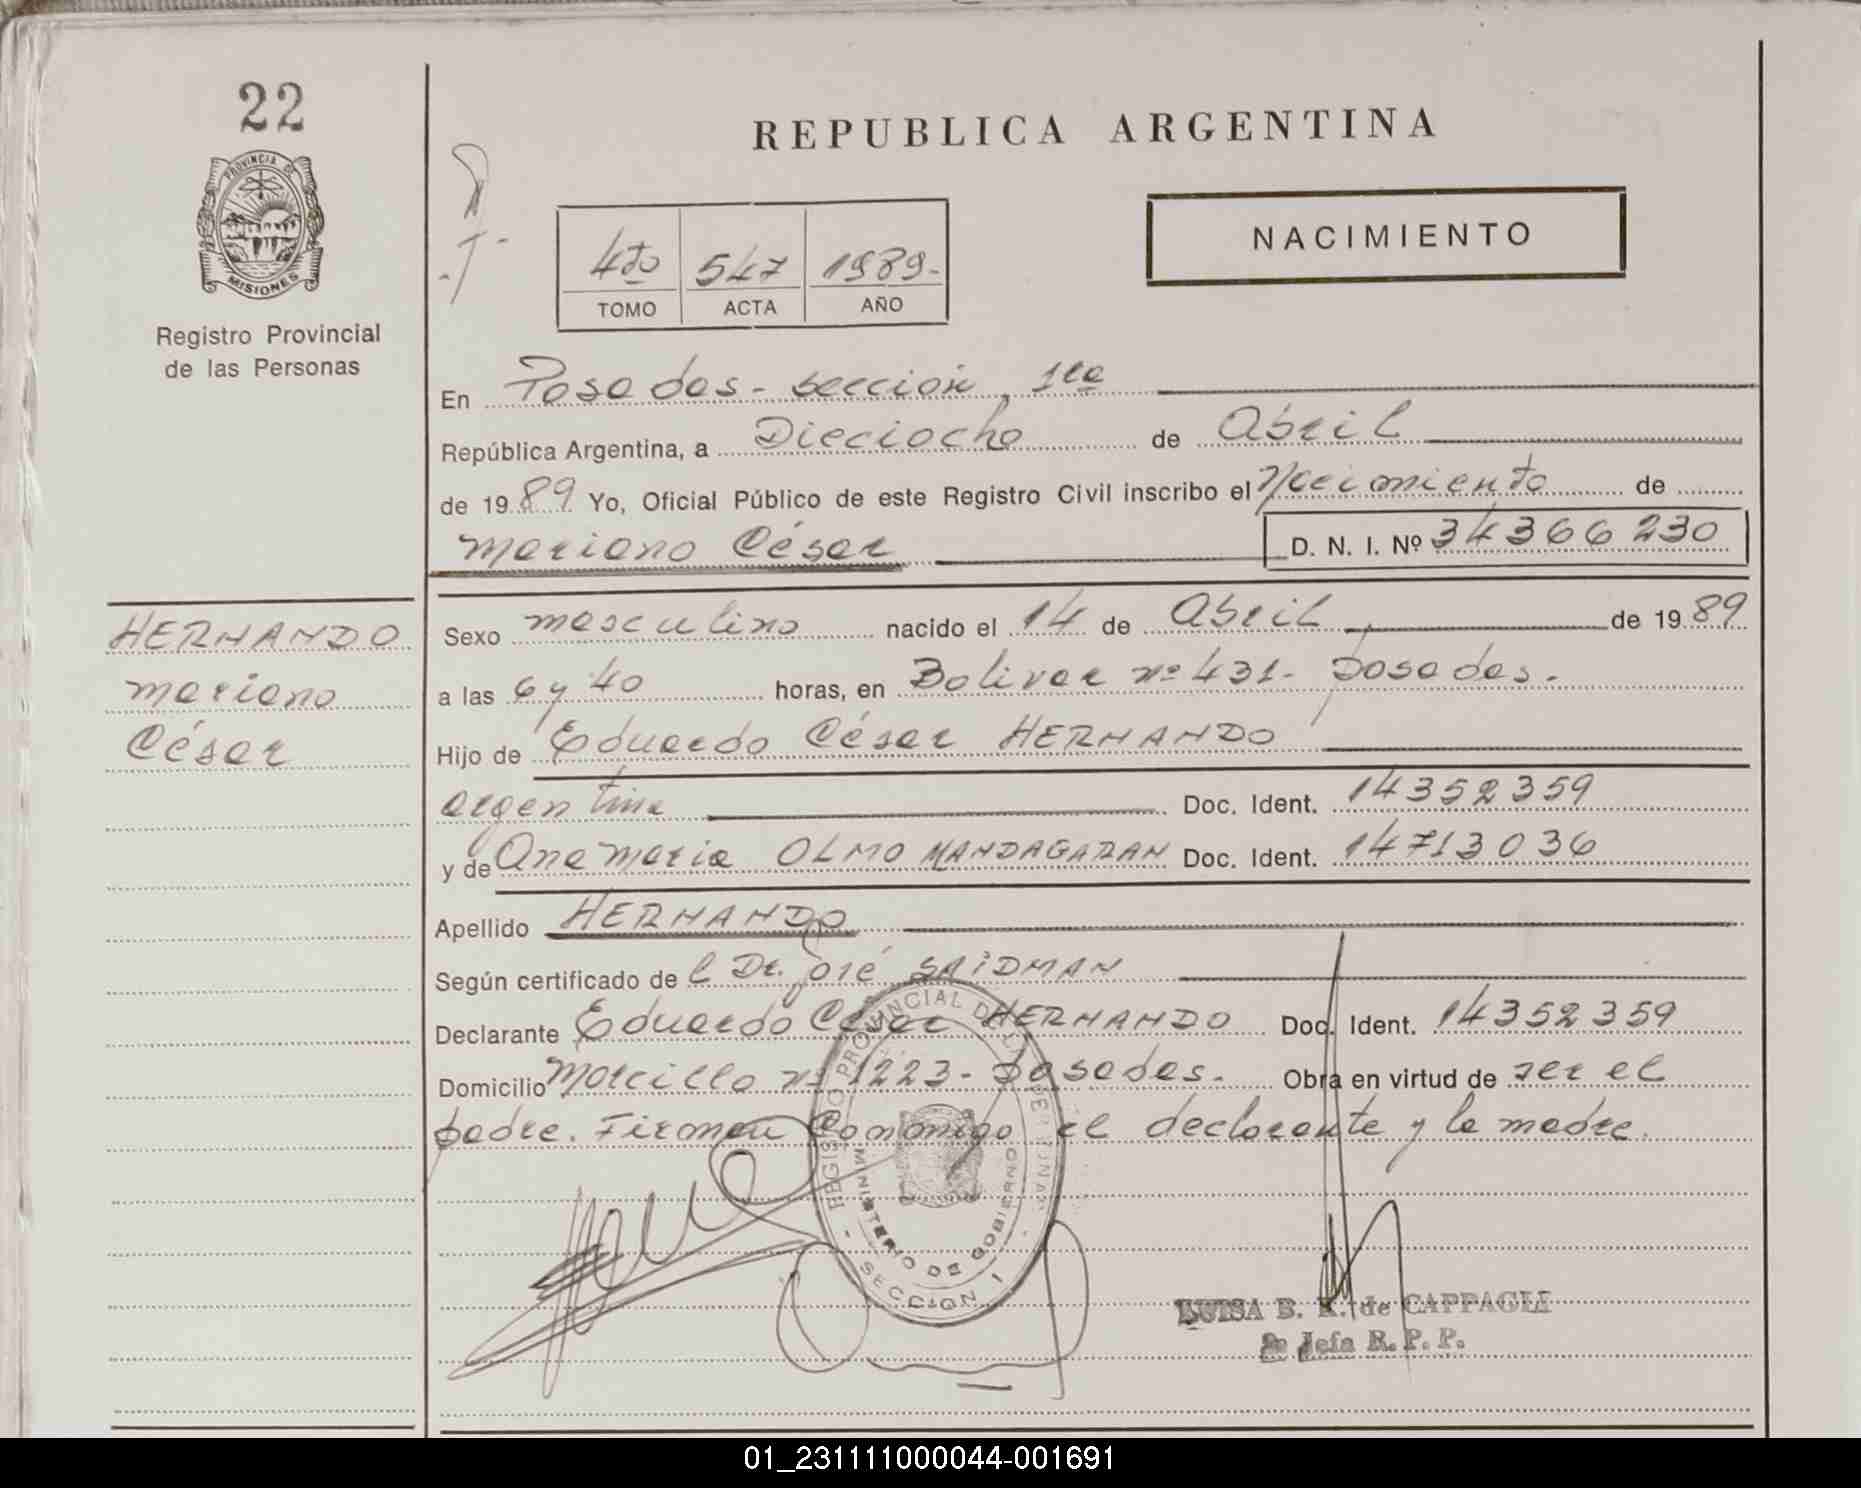 22
REPUBLICA ARGENTINA
PROVINCIA DE
MISIONES
Registro Provincial
de las Personas
NACIMIENTO
4to 547 1989.-
TOMO ACTA AÑO
En Posadas - sección, 1ra
República Argentina, a Dieciocho de Abril
de 1989 Yo, Oficial Público de este Registro Civil inscribo el Nacimiento de
Mariano César D. N. I. Nº 34366230
HERNANDO
Mariano
César
Sexo masculino nacido el 14 de Abril, de 1989
a las 6 y 40 horas, en Bolivar nº 431- Posadas.
Hijo de Eduardo César HERNANDO
argentina Doc. Ident. 14352359
y de Ana María OLMO MANDAGARAN Doc. Ident. 14713036
Apellido HERNANDO
Según certificado de l Dr. José SAIDMAN
Declarante Eduardo César HERNANDO Doc. Ident. 14352359
Domicilio Morcillo nº 1223- Posadas. Obra en virtud de ser el
padre. Firman conmigo el declarante y la madre.
REGISTRO PROVINCIAL DE LAS PERSONAS
MINISTERIO DE GOBIERNO
SECCION 1
LUISA B. K. de CAPPAGLI
2º Jefa R. P. P.
01_231111000044-001691